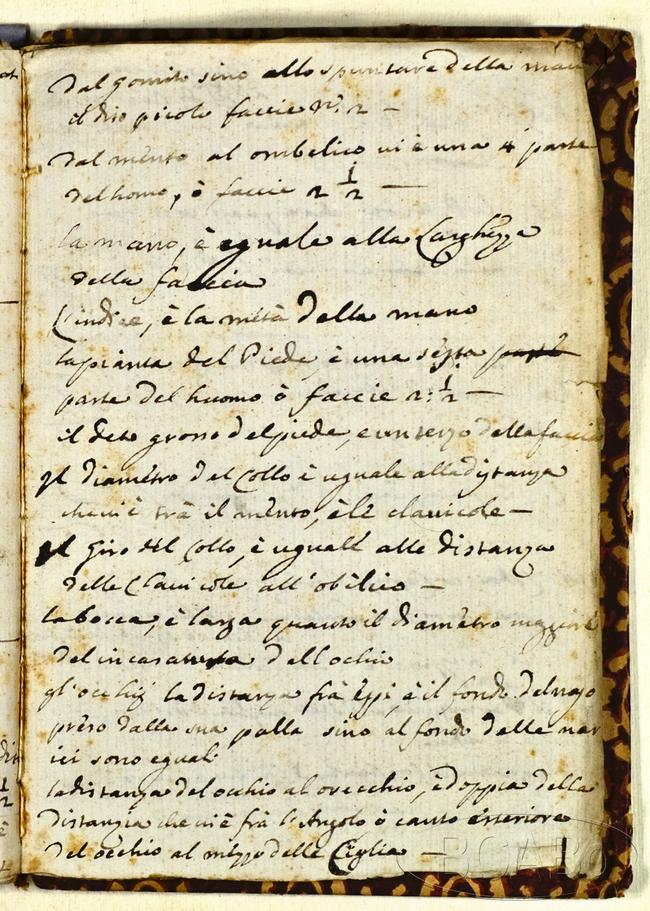 dal gomito sino allo spuntare della man
il dito picolo faccie n: 2 —
dal mento al ombelico vi è una 4 parte
del homo, ò faccie 2 1/2 —
la mano, è eguale alla Larghezza
della faccia
L'indice, è la metà della mano
la pianta del Piede, è una sesta parte
parte del huomo ò faccie 2: 1/2 —
il deto grosso del piede, e un terzo della faccia
Il diametro del Collo è uguale alla distanza
che vi è trà il mento, è le clavicole —
Il Giro del Collo, è uguale alle distanza
delle Clavicole all'obilico —
la bocca, è larga quanto il diametro maggiore
del incasatura dell ochio
gl'occhij la distanza frà essi, è il fondo del naso
preso dalla sua palla sino al fondo delle nar
ici sono eguali
la distanza del occhio al orecchio, è doppia della
distanzia che vi è frà l'Angolo ò canto esteriore
del occhio al mezzo delle Ciglia —